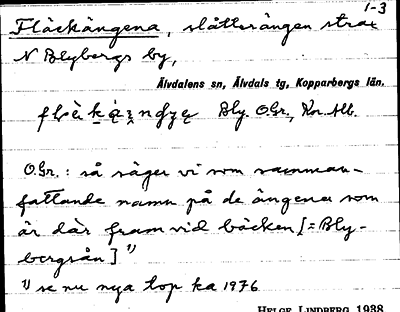 1-3
Fläckängena, slåtterängen strax
N Blybergs by,
Älvdalens sn, Älvdals tg, Kopparbergs län.
Bly. O.Gr., Kor. Alb.
O.Gr.: så säger vi som samman-
fattande namn på de ängena som
är där fram vid bäcken [= Bly-
bergsån] 1)
1) se nu nya top ka 1976
HELGE LINDBERG 1938